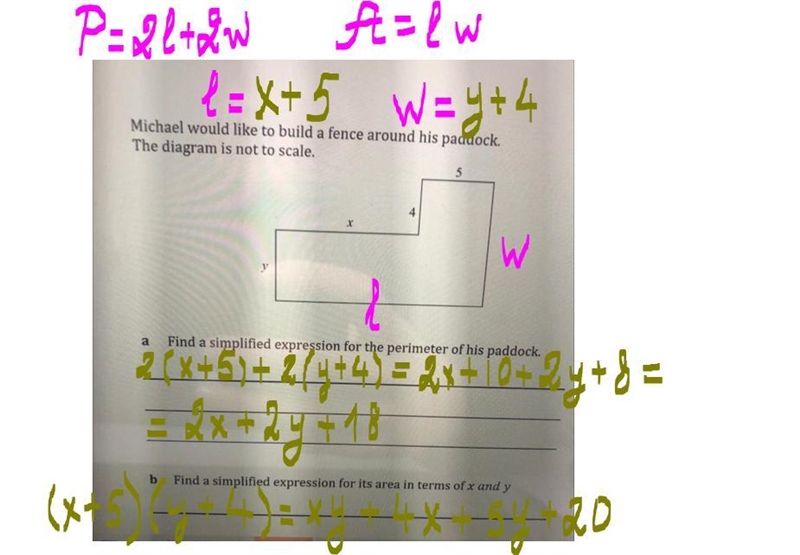 P=2l+2w A=lw
l=x+5 w=y+4
Michael would like to build a fence around his paddock.
The diagram is not to scale.
5
4
x
y
w
l
a Find a simplified expression for the perimeter of his paddock.
2(x+5)+2(y+4)=2x+10+2y+8=
=2x+2y+18
b Find a simplified expression for its area in terms of x and y
(x+5)(y+4)=xy+4x+5y+20